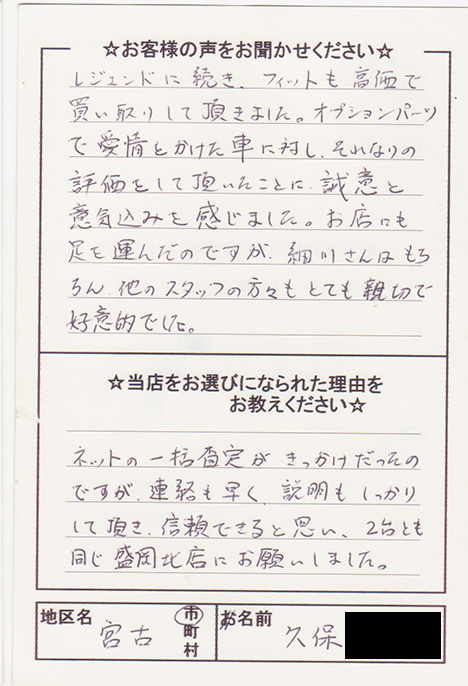 ☆お客様の声をお聞かせください☆
レジェンドに続き、フィットも高価で
買い取りして頂きました。オプションパーツ
で愛情をかけた車に対し、それなりの
評価をして頂いたことに、誠意と
意気込みを感じました。お店にも
足を運んだのですが、細川さんはもち
ろん、他のスタッフの方々もとても親切で
好意的でした。
☆当店をお選びになられた理由を
お教えください☆
ネットの一括査定がきっかけだったの
ですが、連絡も早く、説明もしっかり
して頂き、信頼できると思い、2台とも
同じ盛岡北店にお願いしました。
地区名 宮古 市町村 お名前 久保